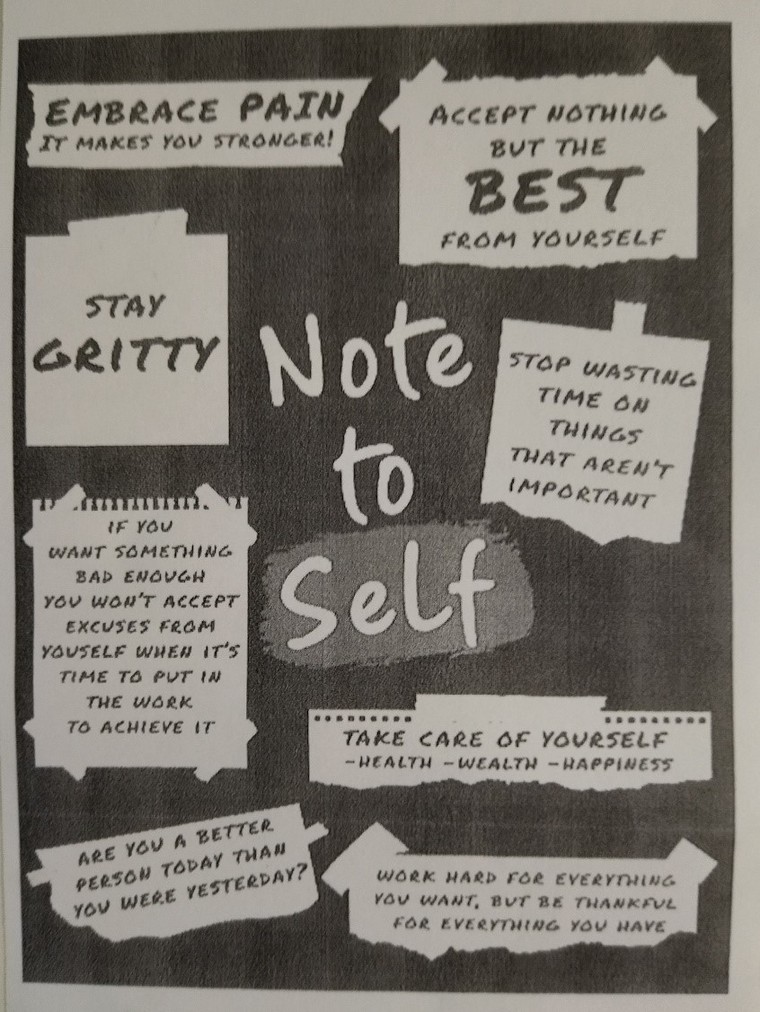 EMBRACE PAIN
IT MAKES YOU STRONGER!
ACCEPT NOTHING
BUT THE
BEST
FROM YOURSELF
STAY
GRITTY
Note
to
Self
STOP WASTING
TIME ON
THINGS
THAT AREN'T
IMPORTANT
IF YOU
WANT SOMETHING
BAD ENOUGH
YOU WON'T ACCEPT
EXCUSES FROM
YOUSELF WHEN IT'S
TIME TO PUT IN
THE WORK
TO ACHIEVE IT
TAKE CARE OF YOURSELF
-HEALTH -WEALTH -HAPPINESS
ARE YOU A BETTER
PERSON TODAY THAN
YOU WERE YESTERDAY?
WORK HARD FOR EVERYTHING
YOU WANT, BUT BE THANKFUL
FOR EVERYTHING YOU HAVE